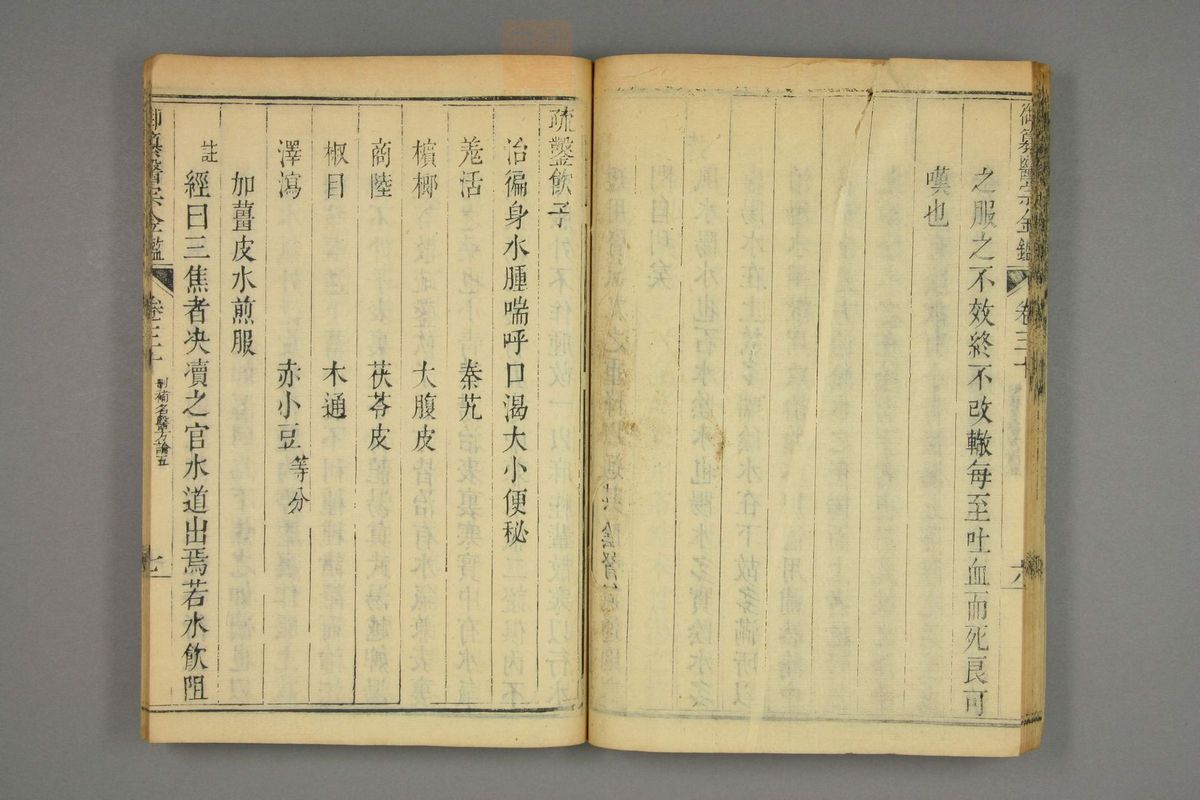 御纂醫宗金鑑 卷三十 六
之服之不效終不改轍每至吐血而死良可
嘆也
疏鑿飲子
治徧身水腫喘呼口渴大小便秘
羗活 秦艽
檳榔 大腹皮
商陸 茯苓皮
椒目 木通
澤瀉 赤小豆等分
加薑皮水煎服
註 經曰三焦者决瀆之官水道出焉若水飲阻
御纂醫宗金鑑 卷三十 刪補名醫方論五 七